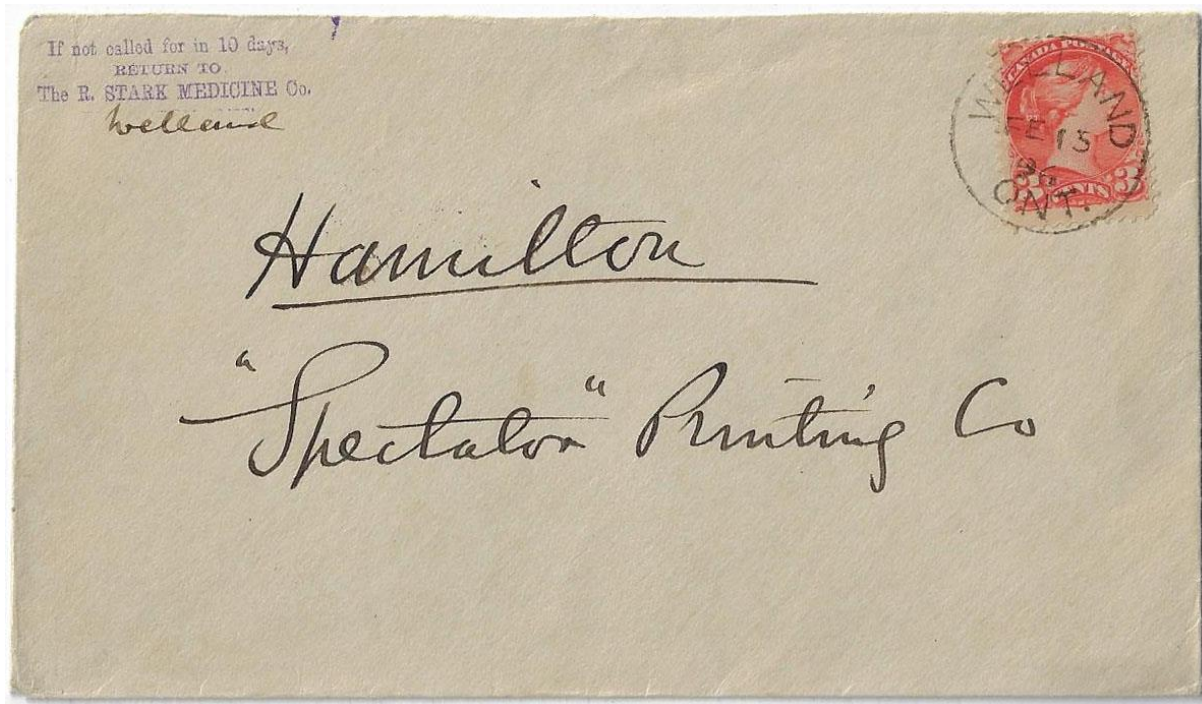 If not called for in 10 days,
RETURN TO
The R. STARK MEDICINE Co.
Welland
CANADA POSTAGE
3 CENTS 3
WELLAND
FE 15
96
ONT.
Hamilton
"Spectator" Printing Co